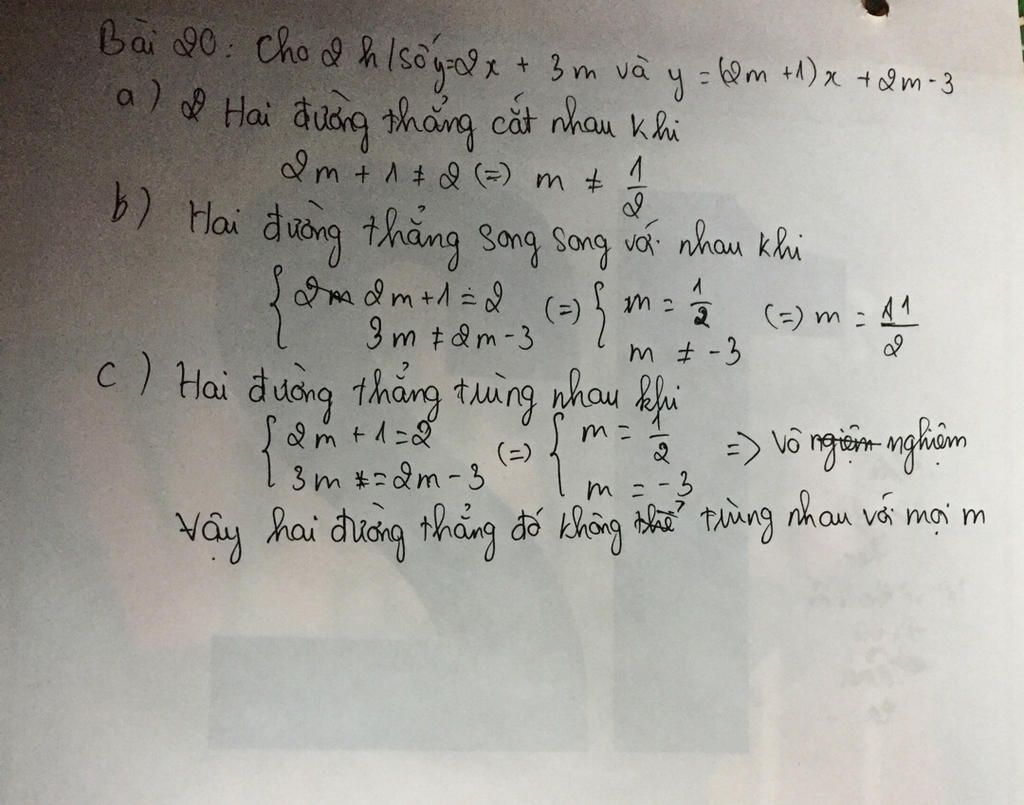 Bài 20: Cho 2 h/số y=2x + 3m và y = (2m +1)x +2m-3
a) 2 Hai đường thẳng cắt nhau khi
2m + 1 ≠ 2 (=) m ≠ 1/2
b) Hai đường thẳng song song với nhau khi
{ 2m 2m+1 = 2 (=) { m = 1/2 (=) m = 11/2
3m ≠ 2m-3 m ≠ -3
c) Hai đường thẳng trùng nhau khi
{ 2m + 1 = 2 (=) { m = 1/2 => Vô ngiệm nghiệm
3m = 2m - 3 m = -3
Vậy hai đường thẳng đó không thể trùng nhau với mọi m